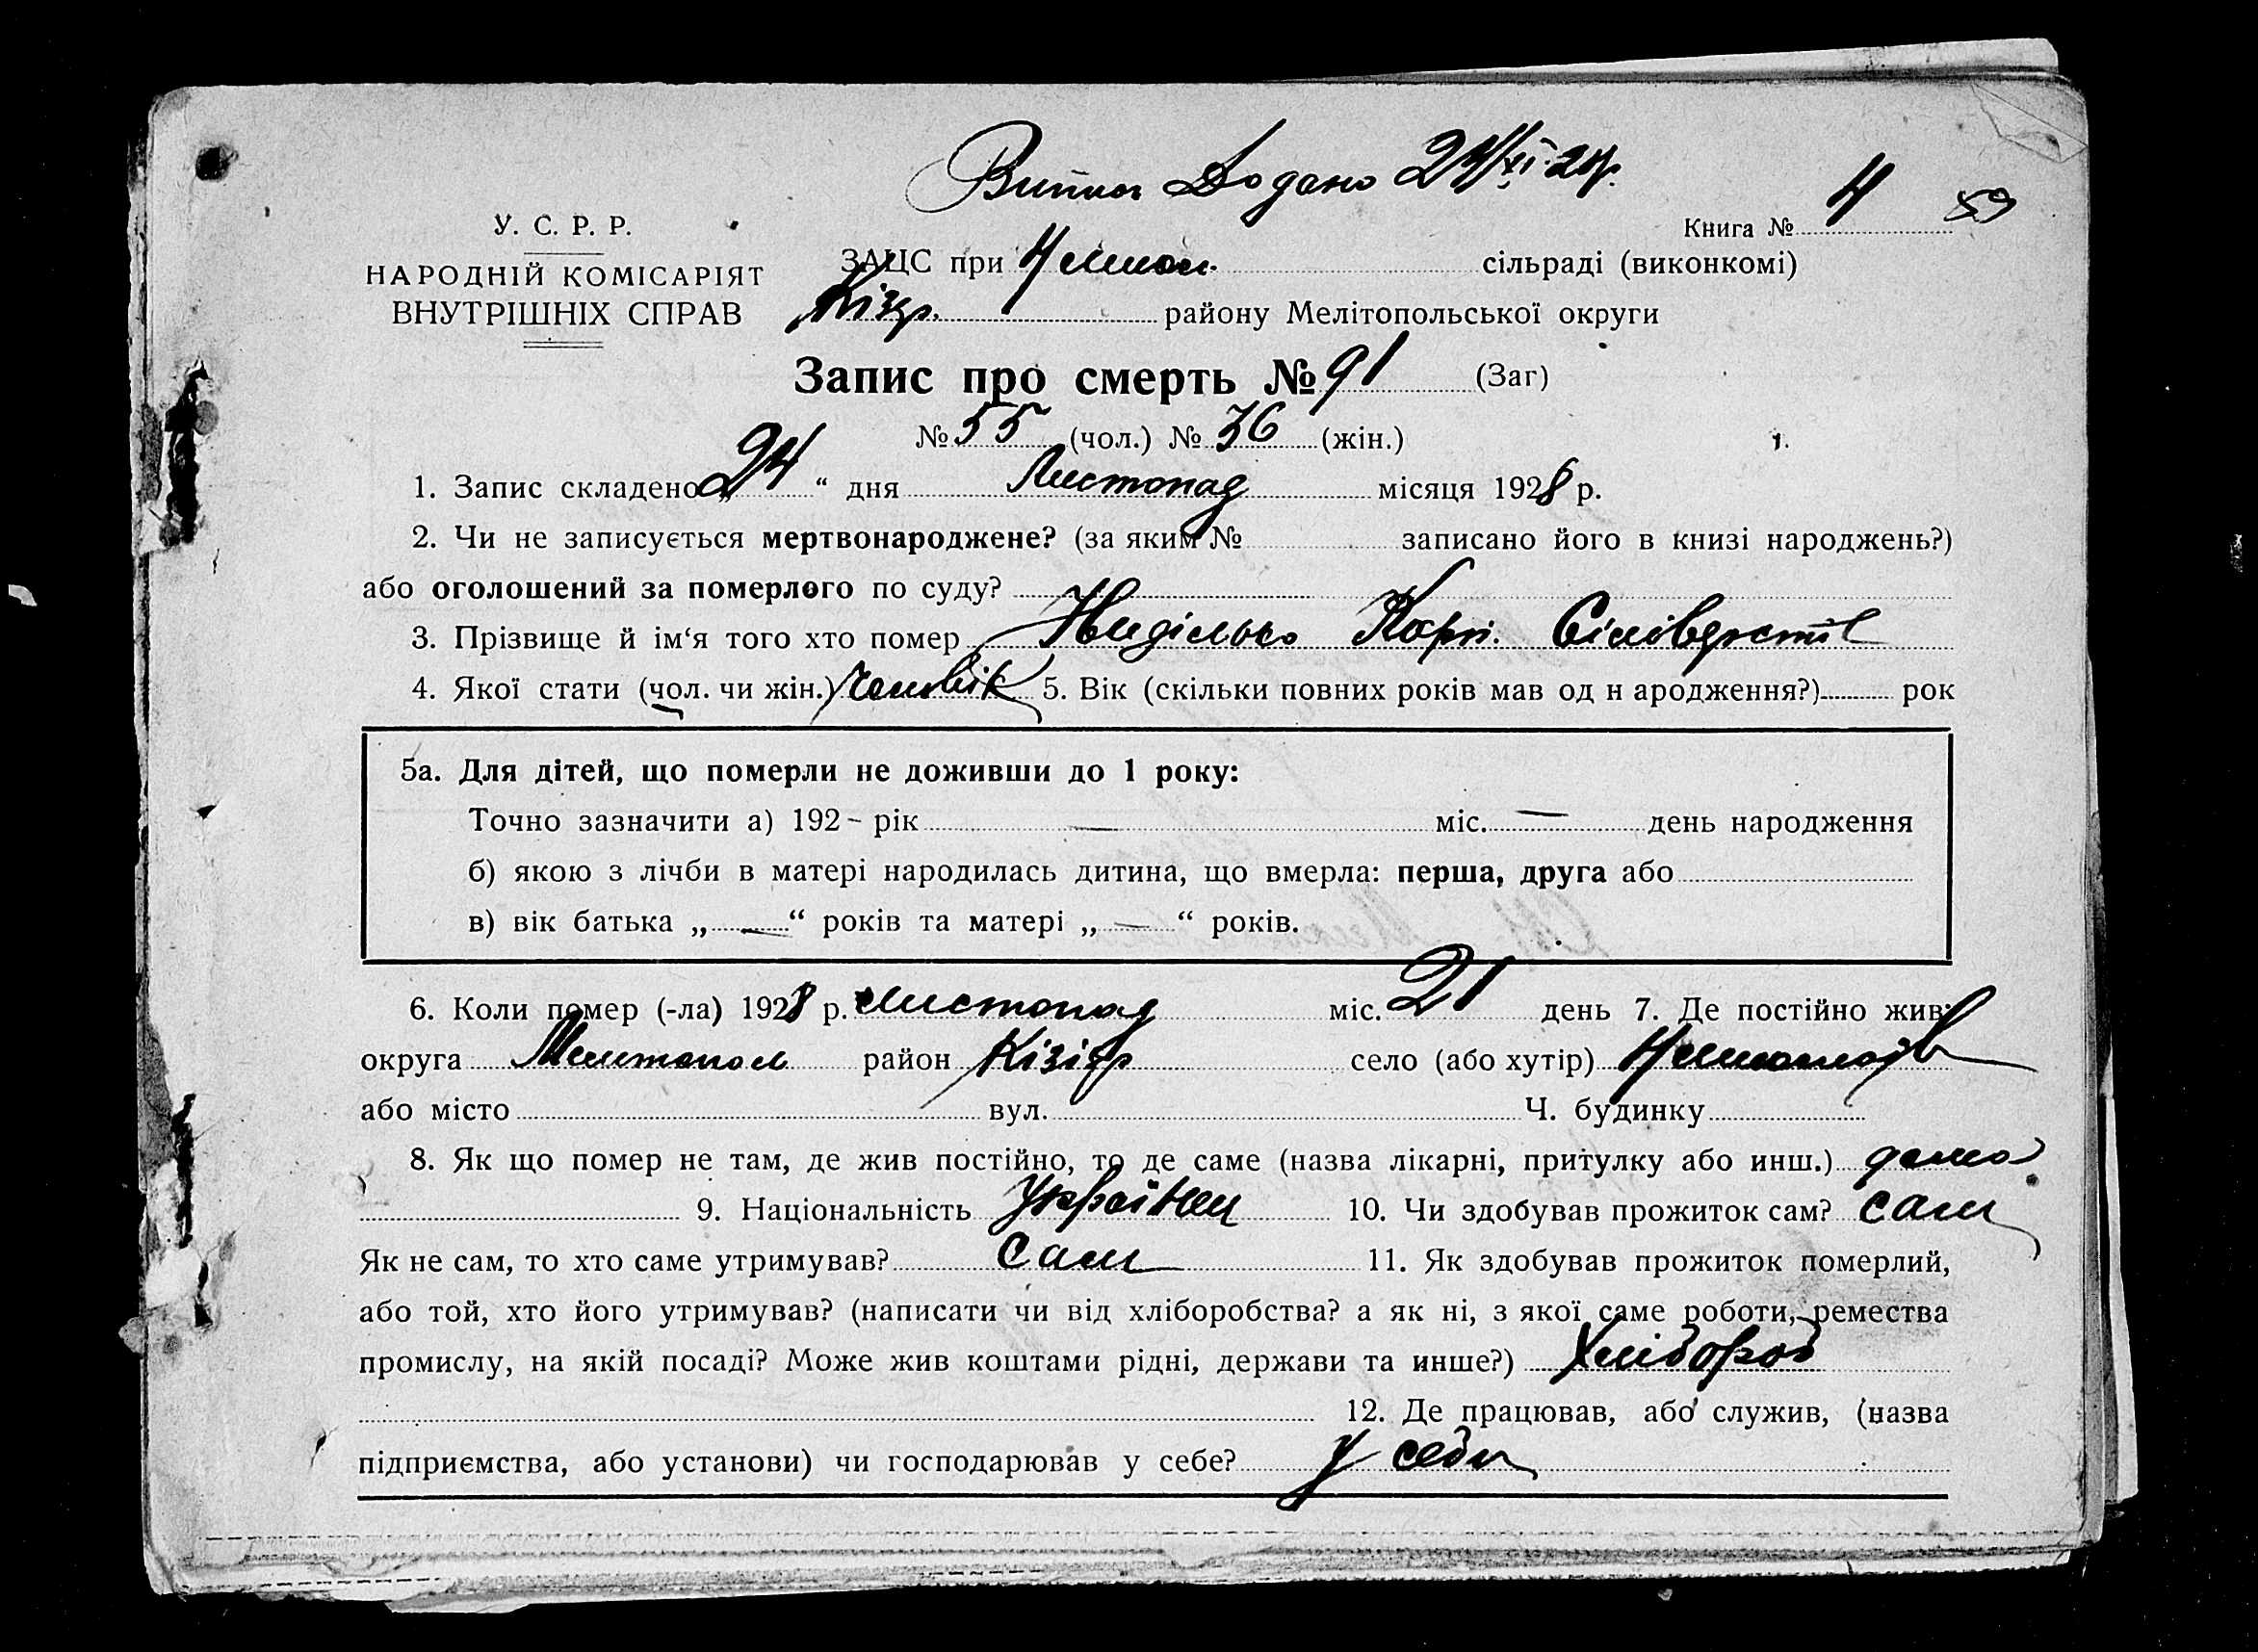 Додано 24/XI 28р.
У. С. Р. Р.
НАРОДНІЙ КОМІСАРІЯТ
ВНУТРІШНІХ СПРАВ
Книга № 4 59
ЗАЦС при сільраді (виконкомі)
Кізр. району Мелітопольської округи
Запис про смерть № 91 (Заг)
№ 55 (чол.) № 36 (жін.)
1. Запис складено „24“ дня Листопад місяця 1928 р.
2. Чи не записується мертвонароджене? (за яким № записано його в книзі народжень?)
або оголошений за померлого по суду?
3. Прізвище й ім‘я того хто помер Карп.
4. Якої стати (чол. чи жін.) Чоловік 5. Вік (скільки повних років мав од н ародження?) рок
5а. Для дітей, що померли не доживши до 1 року:
Точно зазначити а) 192– рік — міс. — день народження
б) якою з лічби в матері народилась дитина, що вмерла: перша, друга або
в) вік батька „—“ років та матері „—“ років.
6. Коли помер (-ла) 1928 р. Листопад міс. 21 день 7. Де постійно жив:
округа Мелитопол район Кізіяр село (або хутір)
або місто вул. Ч. будинку
8. Як що помер не там, де жив постійно, то де саме (назва лікарні, притулку або инш.) дома
9. Національність Українец 10. Чи здобував прожиток сам? сам
Як не сам, то хто саме утримував? сам 11. Як здобував прожиток померлий,
або той, хто його утримував? (написати чи від хліборобства? а як ні, з якої саме роботи, ремества
промислу, на якій посаді? Може жив коштами рідні, держави та инше?) Хлібороб
12. Де працював, або служив, (назва
підприємства, або установи) чи господарював у себе? У себи